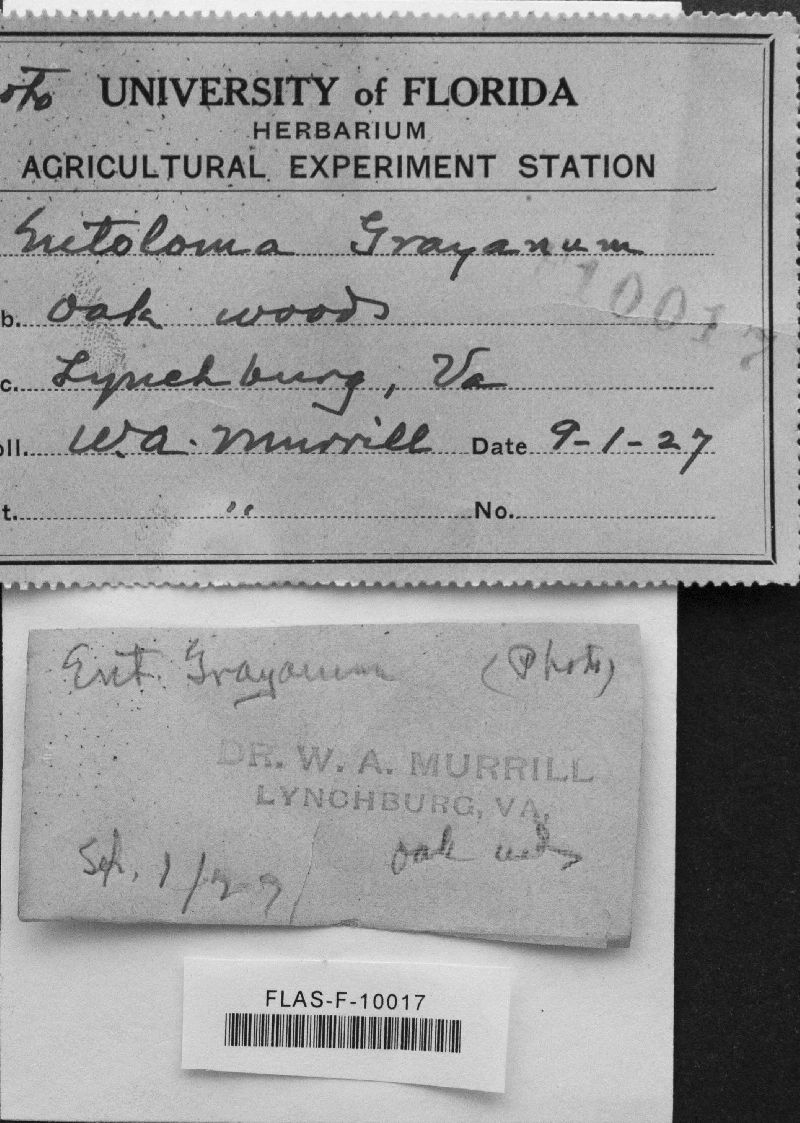 oto UNIVERSITY of FLORIDA
HERBARIUM
AGRICULTURAL EXPERIMENT STATION
Entoloma Grayanum
F10017
b. oak woods
c. Lynchburg, Va
oll. W.A. Murrill Date 9-1-27
t. " No.
Ent. Grayanum (Photo)
DR. W. A. MURRILL
LYNCHBURG, VA.
Sep. 1/27 oak wds
FLAS-F-10017